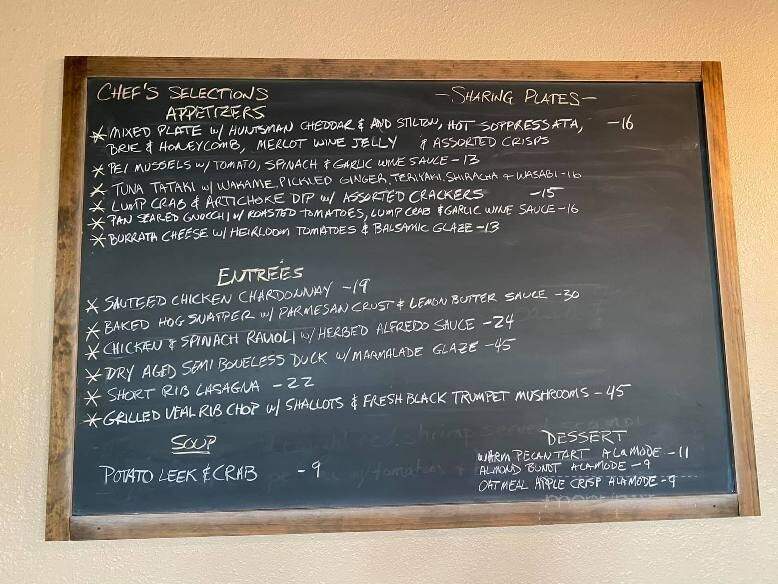 CHEF'S SELECTIONS
-SHARING PLATES-
APPETIZERS
* MIXED PLATE W/ HUNTSMAN CHEDDAR & AND STILTON, HOT SOPPRESSATA, -16
BRIE & HONEYCOMB, MERLOT WINE JELLY & ASSORTED CRISPS
* PEI MUSSELS W/ TOMATO, SPINACH & GARLIC WINE SAUCE -13
* TUNA TATAKI W/ WAKAME, PICKLED GINGER, TERIYAKI, SHIRACHA + WASABI -16
* LUMP CRAB & ARTICHOKE DIP W/ ASSORTED CRACKERS -15
* PAN SEARED GNOCCHI W/ ROASTED TOMATOES, LUMP CRAB & GARLIC WINE SAUCE -16
* BURRATA CHEESE W/ HEIRLOOM TOMATOES & BALSAMIC GLAZE -13
ENTREÉS
* SAUTEED CHICKEN CHARDONNAY -19
* BAKED HOG SNAPPER W/ PARMESAN CRUST & LEMON BUTTER SAUCE -30
* CHICKEN & SPINACH RAVIOLI W/ HERBED ALFREDO SAUCE -24
* DRY AGED SEMI BONELESS DUCK W/ MARMALADE GLAZE -45
* SHORT RIB LASAGNA -22
* GRILLED VEAL RIB CHOP W/ SHALLOTS & FRESH BLACK TRUMPET MUSHROOMS -45
SOUP
POTATO LEEK & CRAB -9
DESSERT
WARM PECAN TART ALAMODE -11
ALMOND BUNDT ALAMODE -9
OATMEAL APPLE CRISP ALAMODE -9